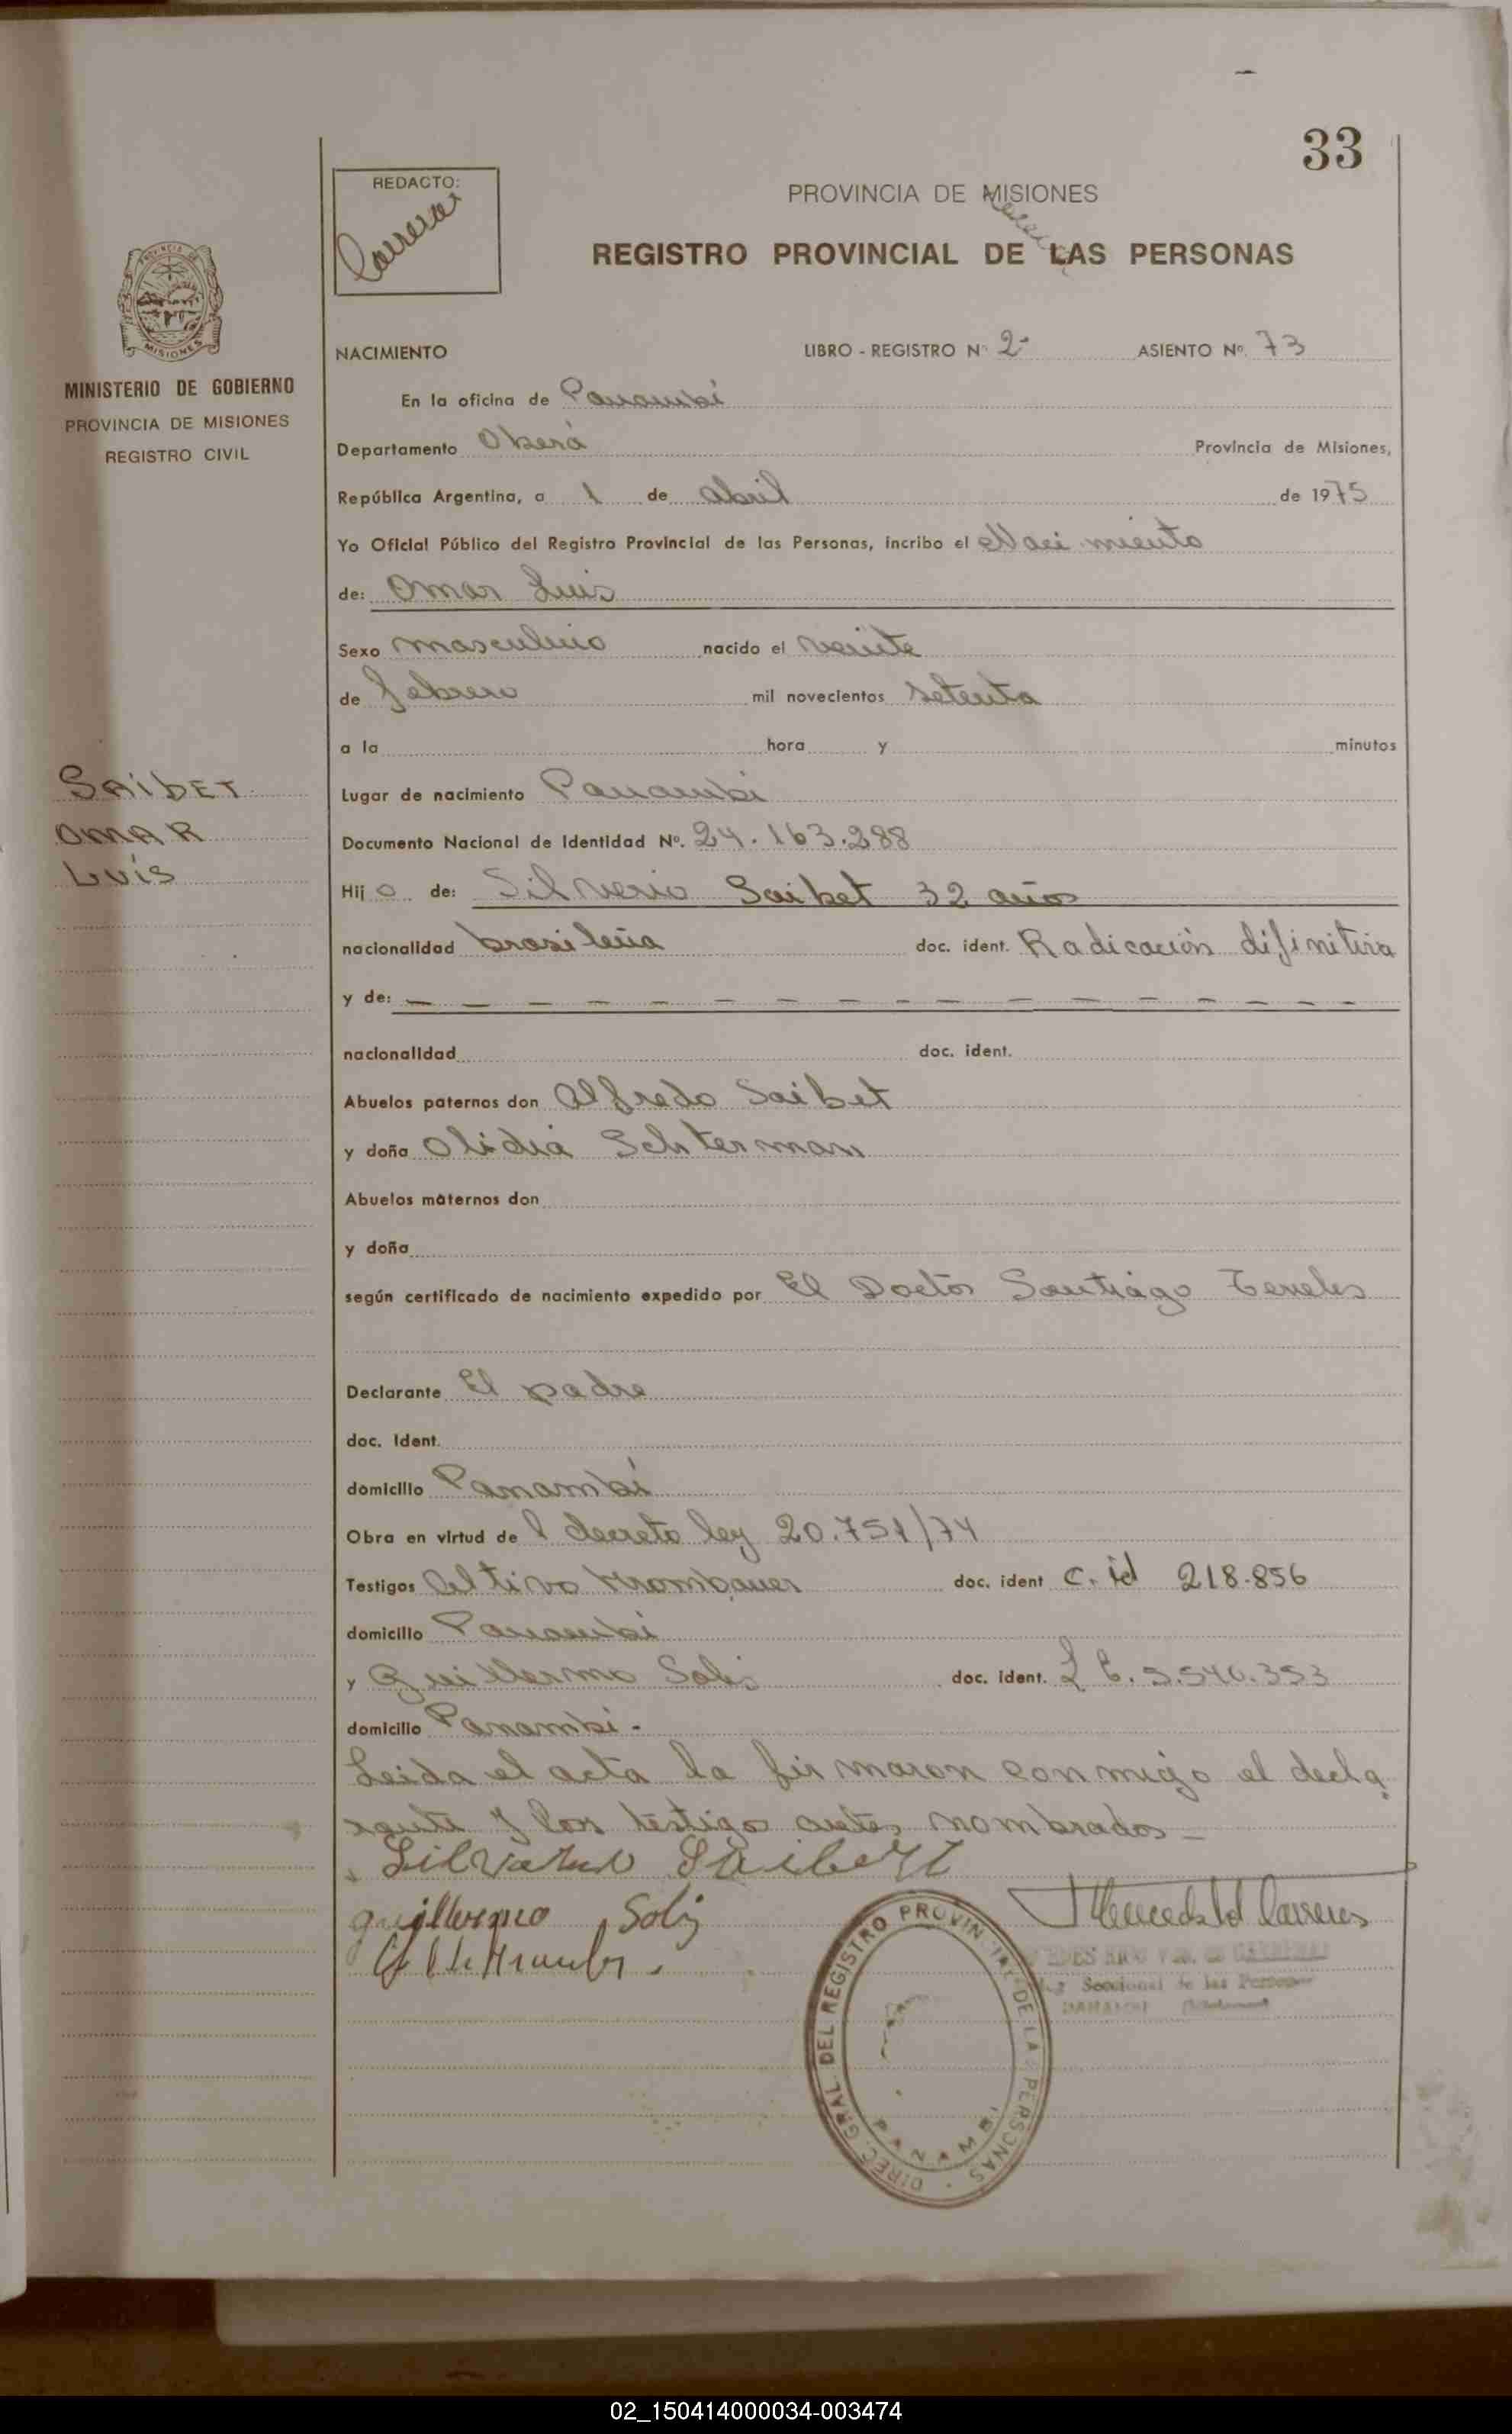 33
REDACTO:
Carreras
PROVINCIA DE MISIONES
REGISTRO PROVINCIAL DE LAS PERSONAS
PROVINCIA DE
MISIONES
MINISTERIO DE GOBIERNO
PROVINCIA DE MISIONES
REGISTRO CIVIL
SAibET
OMAR
Luis
NACIMIENTO LIBRO - REGISTRO Nº 2º ASIENTO Nº 73
En la oficina de Panambí
Departamento Oberá Provincia de Misiones,
República Argentina, a 1 de abril de 1975
Yo Oficial Público del Registro Provincial de las Personas, incribo el Naci miento
de: Omar Luis
Sexo masculino nacido el veinte
de febrero mil novecientos setenta
a la hora y minutos
Lugar de nacimiento Panambi
Documento Nacional de Identidad Nº. 24.163.288
Hij o de: Silverio Saibet 32 años
nacionalidad brasileña doc. ident. Radicación difinitiva
y de: — — — — — — — — — — — — — — — —
nacionalidad doc. ident.
Abuelos paternos don Alfredo Saibet
y doña Olidia Schterman
Abuelos maternos don
y doña
según certificado de nacimiento expedido por El Doctor Santiago
Declarante El padre
doc. Ident.
domicilio Panambí
Obra en virtud de l decreto ley 20.751/74
Testigos Altivo Hrombauer doc. ident C. id 218.856
domicilio Panambi
y Guillermo Solis doc. ident. L E. 5.540.353
domicilio Panambi.
Leida el acta la firmaron conmigo el decla
rante y los testigo antes nombrados —
Saibert
guillermo Solis
DIREC. GRAL. DEL REGISTRO PROVINCIAL DE LAS PERSONAS
PANAMBI
Seccional de las Personas
PANAMBI
02_150414000034-003474